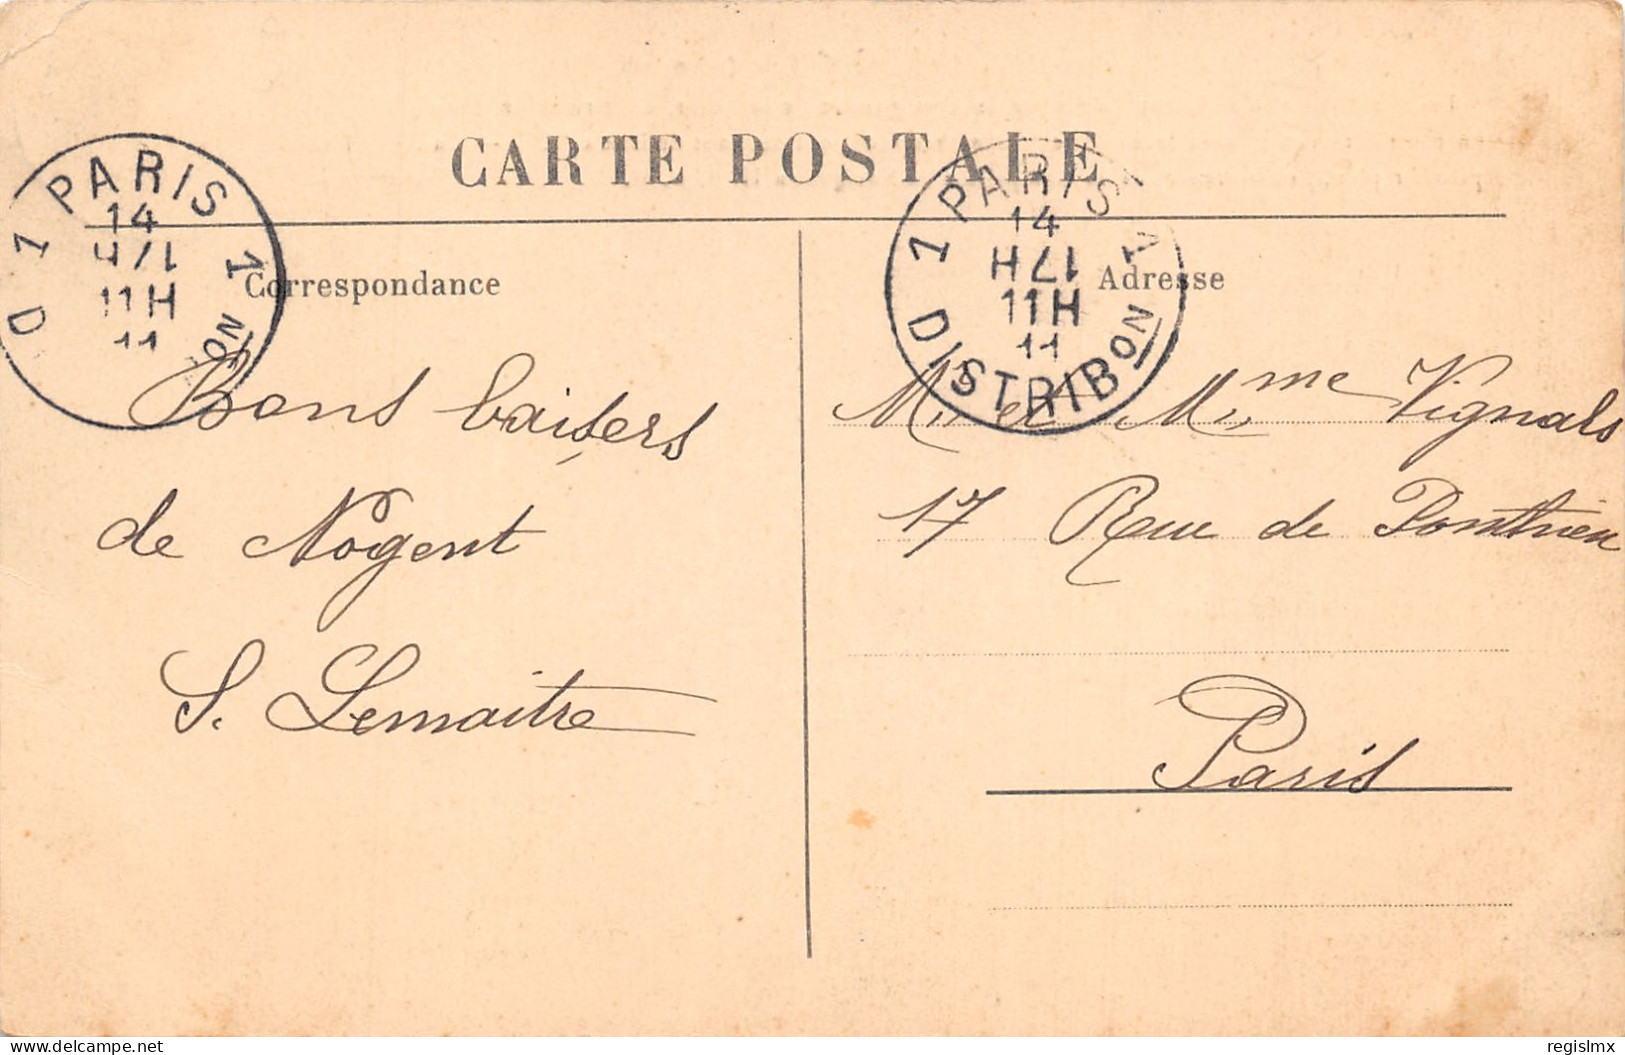 CARTE POSTALE
PARIS 1
14
11H
11
D 1
ON
PARIS 1
14
11H
11
1 DISTRIBON
Correspondance
Bons baisers
de Nogent
S. Lemaitre
Adresse
M. et Mme Vignals
17 Rue de Ponthieu
Paris
delcampe.net
regislmx